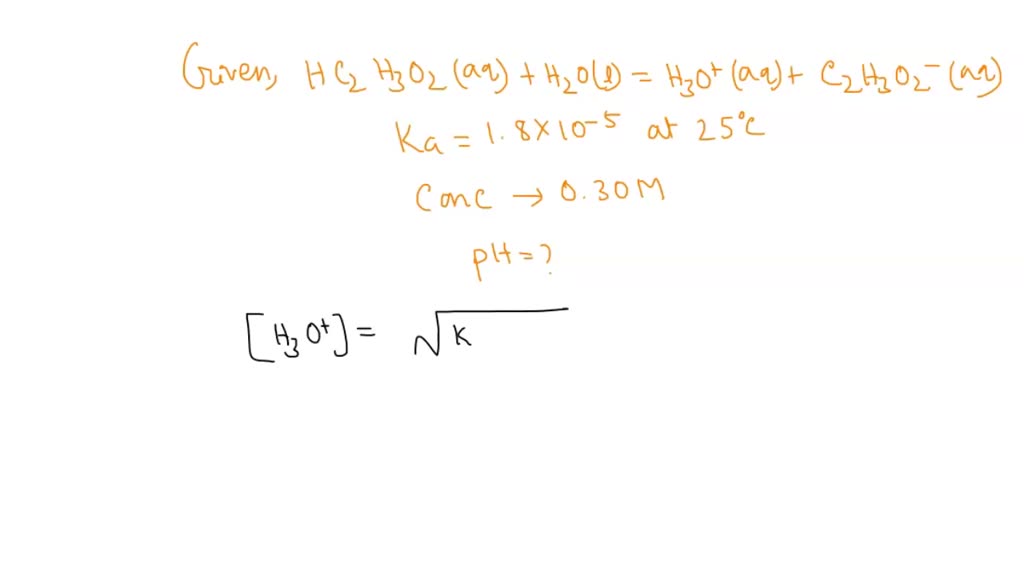 Given, HC₂H₃O₂(aq) + H₂O(l) = H₃O⁺(aq) + C₂H₃O₂⁻(aq)
Ka = 1.8×10⁻⁵ at 25°C
Conc → 0.30M
pH = ?
[H₃O⁺] = √K